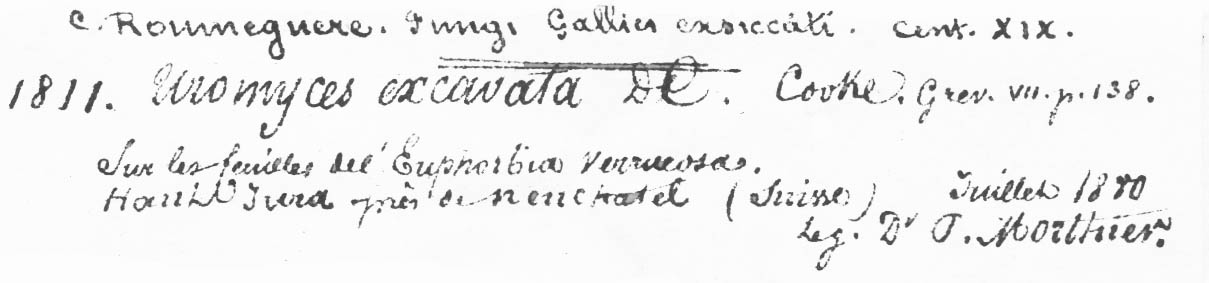 C. Roumeguere. Fungi Gallici exsiccati. Cent. XIX.
1811. Uromyces excavata DC. Cooke. Grev. VII. p. 138.
Sur les feuilles del' Euphorbia verrucosa.
Haut Jura près de Neuchatel (Suisse) Juillet 1880
Leg. Dr P. Morthier.